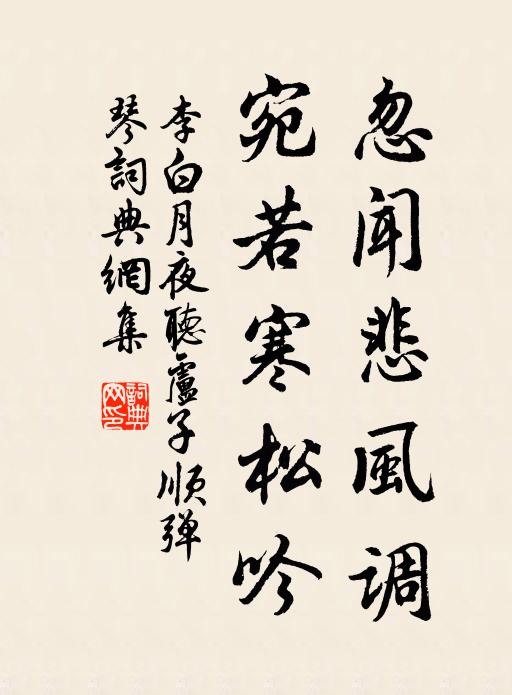 忽闻悲風调
宛若寒松吟
李白月夜聽盧子順弾
琴詞典網集
詞典
网印